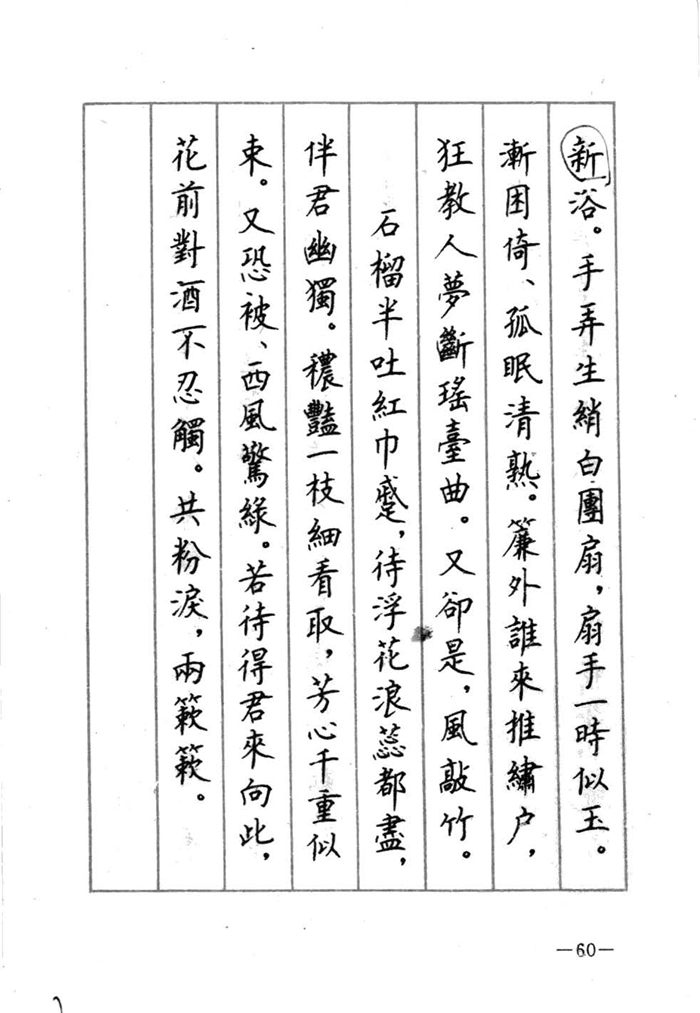 新浴。手弄生綃白團扇，扇手一時似玉。
漸困倚、孤眠清熟。簾外誰來推繡户，
狂教人夢斷瑤臺曲。又卻是，風敲竹。
石榴半吐紅巾蹙，待浮花浪蕊都盡，
伴君幽獨。穠豔一枝細看取，芳心千重似
束。又恐被、西風驚綠。若待得君來向此，
花前對酒不忍觸。共粉淚，兩簌簌。
—60—